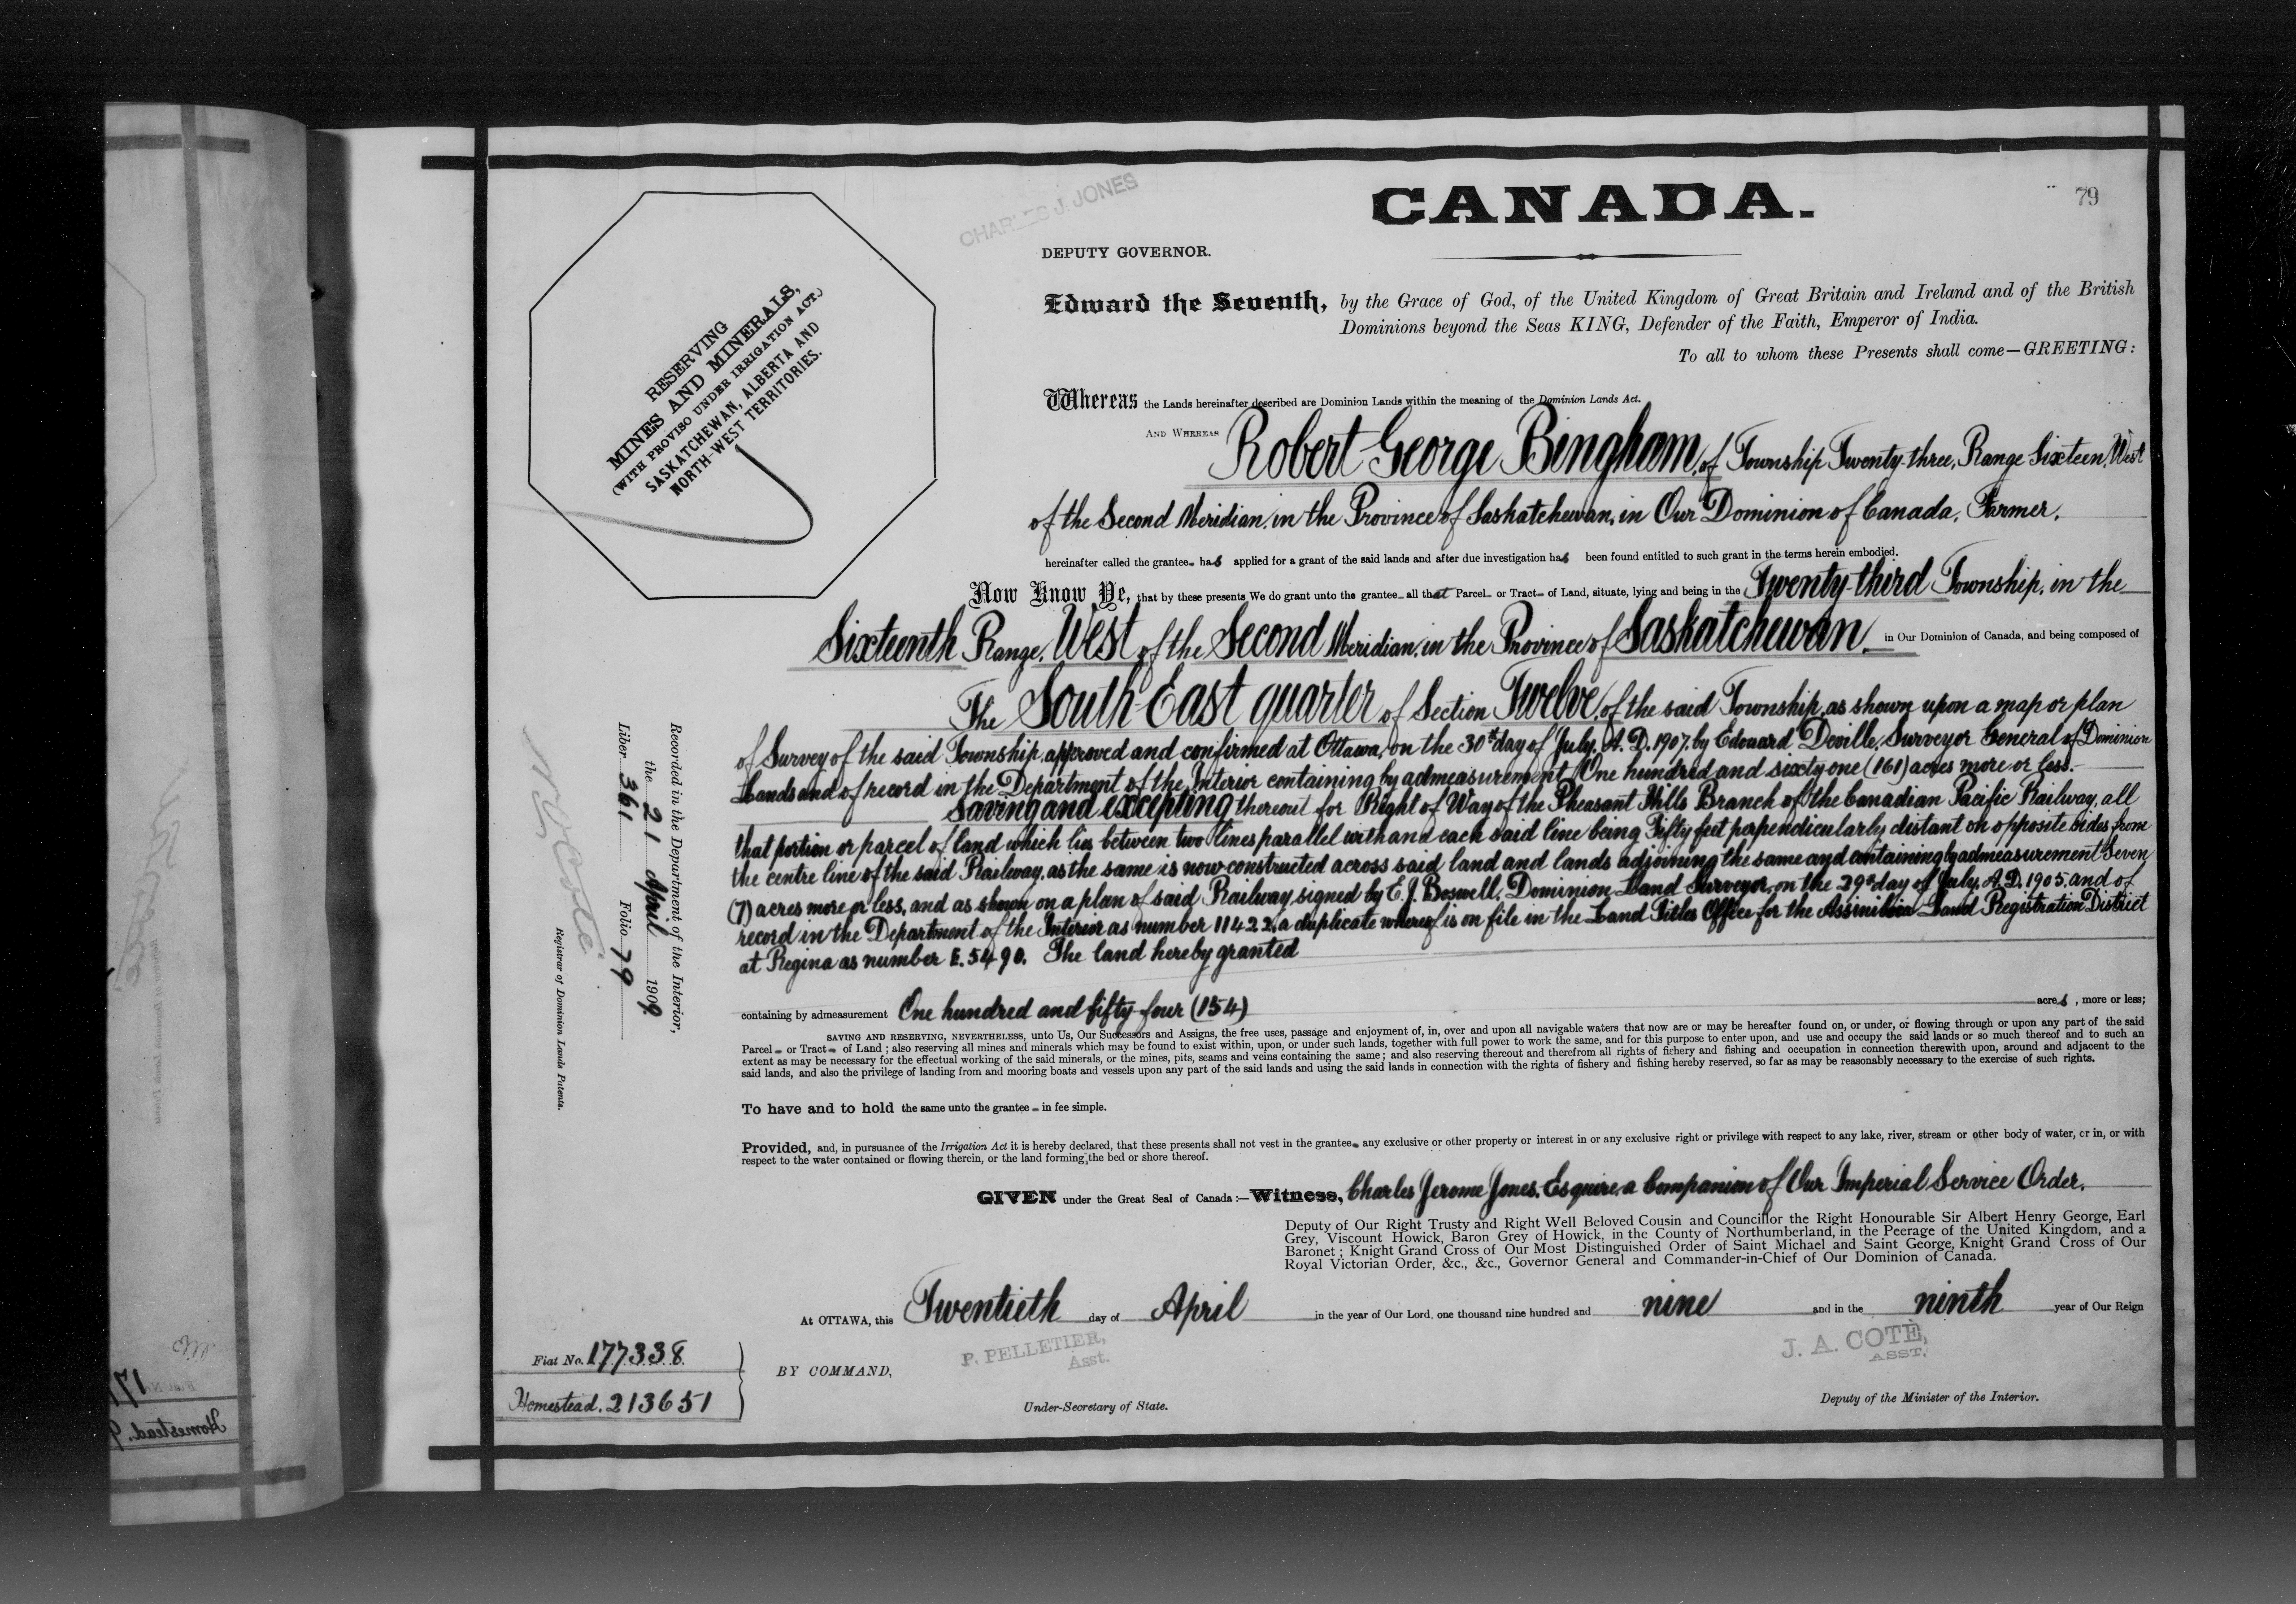 79
CHARLES J. JONES
CANADA.
DEPUTY GOVERNOR.
RESERVING
MINES AND MINERALS,
(WITH PROVISO UNDER IRRIGATION ACT.)
SASKATCHEWAN, ALBERTA AND
NORTH-WEST TERRITORIES.
Edward the Seventh, by the Grace of God, of the United Kingdom of Great Britain and Ireland and of the British
Dominions beyond the Seas KING, Defender of the Faith, Emperor of India.
To all to whom these Presents shall come—GREETING:
Whereas the Lands hereinafter described are Dominion Lands within the meaning of the Dominion Lands Act.
AND WHEREAS Robert George Bingham, of Township Twenty-three, Range Sixteen, West
of the Second Meridian, in the Province of Saskatchewan, in Our Dominion of Canada, Farmer,
hereinafter called the grantee has applied for a grant of the said lands and after due investigation has been found entitled to such grant in the terms herein embodied.
Now Know Ye, that by these presents We do grant unto the grantee all that Parcel or Tract of Land, situate, lying and being in the Twenty-third Township, in the
Sixteenth Range, West of the Second Meridian, in the Province of Saskatchewan, in Our Dominion of Canada, and being composed of
The South East quarter of Section Twelve, of the said Township, as shown upon a map or plan
of Survey of the said Township, approved and confirmed at Ottawa, on the 30th day of July, A.D. 1907, by Edouard Deville, Surveyor General of Dominion
Lands and of record in the Department of the Interior containing by admeasurement One hundred and sixty-one (161) acres more or less.
Saving and excepting thereout for Right of Way of the Pheasant Hills Branch of the Canadian Pacific Railway, all
that portion or parcel of land which lies between two lines parallel with and each said line being Fifty feet perpendicularly distant on opposite sides from
the centre line of the said Railway, as the same is now constructed across said land and lands adjoining the same and containing by admeasurement Seven
(7) acres more or less, and as shown on a plan of said Railway signed by E. J. Boswell, Dominion Land Surveyor, on the 29th day of July, A.D. 1905, and of
record in the Department of the Interior as number 11422, a duplicate whereof is on file in the Land Titles Office for the Assiniboia Land Registration District
at Regina as number E. 5490. The land hereby granted
containing by admeasurement One hundred and fifty-four (154) acres, more or less;
SAVING AND RESERVING, NEVERTHELESS, unto Us, Our Successors and Assigns, the free uses, passage and enjoyment of, in, over and upon all navigable waters that now are or may be hereafter found on, or under, or flowing through or upon any part of the said
Parcel or Tract of Land; also reserving all mines and minerals which may be found to exist within, upon, or under such lands, together with full power to work the same, and for this purpose to enter upon, and use and occupy the said lands or so much thereof and to such an
extent as may be necessary for the effectual working of the said minerals, or the mines, pits, seams and veins containing the same; and also reserving thereout and therefrom all rights of fishery and fishing and occupation in connection therewith upon, around and adjacent to the
said lands, and also the privilege of landing from and mooring boats and vessels upon any part of the said lands and using the said lands in connection with the rights of fishery and fishing hereby reserved, so far as may be reasonably necessary to the exercise of such rights.
To have and to hold the same unto the grantee in fee simple.
Provided, and, in pursuance of the Irrigation Act it is hereby declared, that these presents shall not vest in the grantee any exclusive or other property or interest in or any exclusive right or privilege with respect to any lake, river, stream or other body of water, or in, or with
respect to the water contained or flowing therein, or the land forming the bed or shore thereof.
GIVEN under the Great Seal of Canada:—Witness, Charles Jerome Jones, Esquire, a Companion of Our Imperial Service Order,
Deputy of Our Right Trusty and Right Well Beloved Cousin and Councillor the Right Honourable Sir Albert Henry George, Earl
Grey, Viscount Howick, Baron Grey of Howick, in the County of Northumberland, in the Peerage of the United Kingdom, and a
Baronet; Knight Grand Cross of Our Most Distinguished Order of Saint Michael and Saint George, Knight Grand Cross of Our
Royal Victorian Order, &c., &c., Governor General and Commander-in-Chief of Our Dominion of Canada.
At OTTAWA, this Twentieth day of April in the year of Our Lord, one thousand nine hundred and nine and in the ninth year of Our Reign
P. PELLETIER,
Asst.
J. A. COTÉ,
ASST.
BY COMMAND,
Under-Secretary of State.
Deputy of the Minister of the Interior.
Fiat No. 177338
Homestead. 213651
Recorded in the Department of the Interior,
the 21 April 1909
Liber 361 Folio 79
N O Coté
Registrar of Dominion Lands Patents.